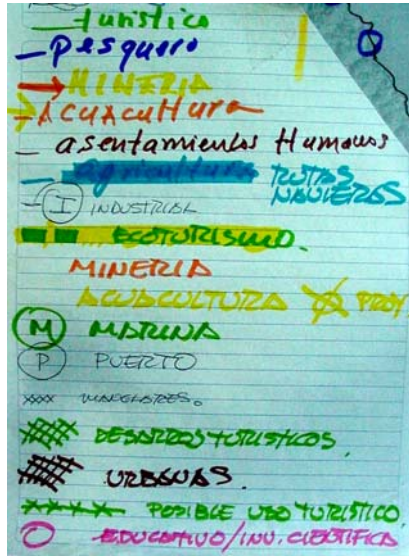 turistico
Pesquero
MINERIA
ACUACultura
asentamientos Humanos
agricultura RUTAS NAVIERAS
I INDUSTRIAL
ECOTURISMO.
MINERIA
ACUACULTURA PROY
M MARINA
P PUERTO
xxxx MANGLARES.
DESARROS TURISTICOS.
URBANAS.
POSIBLE USO TURÍSTICO
EDUCATIVO/INV. CIENTIFICA